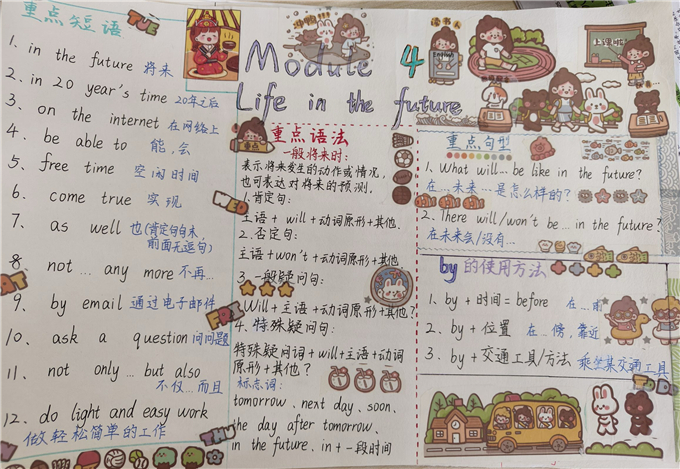 重点短语
TUE
1、in the future 将来
2、in 20 year's time 20年之后
3、on the internet 在网络上
4、be able to 能,会
5、free time 空闲时间
6、come true 实现
7、as well 也(肯定句句末,
前面无逗句)
8、not … any more 不再…
9、by email 通过电子邮件
10、ask a question 问问题
11、not only … but also
不仅…而且
12、do light and easy work
做轻松简单的工作
WED
FRI
THU
Module 4
Life in the future
读书人
English
上课啦
重点语法
重点
一般将来时:
表示将来发生的动作或情况,
也可表达对将来的预测。
1.肯定句:
主语+will+动词原形+其他.
2.否定句:
主语+won't+动词原形+其他
3.一般疑问句:
Will+主语+动词原形+其他?
4.特殊疑问句:
特殊疑问词+will+主语+动词
原形+其他?
标志词:
tomorrow、next day、soon、
the day after tomorrow、
in the future、in+一段时间
重点句型
1. What will… be like in the future?
在…未来…是怎么样的?
2. There will/won't be … in the future?
在未来会/没有…
by的使用方法
1. by+时间=before 在…前
2. by+位置 在…傍,靠近
3. by+交通工具/方法 乘坐某交通工具